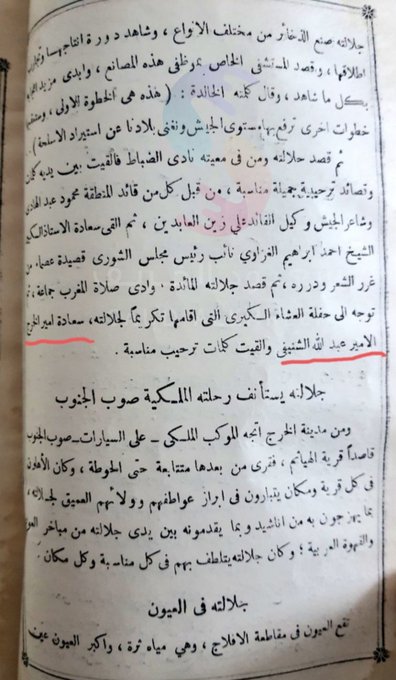 جلالته صنع الذخائر من مختلف الانواع ، وشاهد دورة انتاجها
اطلاقها ، وقصد المستشفى الخاص بموظفى هذه المصانع ، وابدى مزيد
بكل ما شاهد ، وقال كلمته الخالدة : ( هذه هى الخطوة الاولى ،
خطوات اخرى ترفع بها مستوى الجيش وتغنى بلادنا عن استيراد الاسلحة ) .
ثم قصد جلالته ومن فى معيته نادى الضباط فالقيت بين يديه
وقصائد ترحيبية جميلة مناسبة ، من قبل كل من قائد المنطقة محمود عبد الهادى
وشاعر الجيش وكيل القائد على زين العابدين ، ثم القى سعادة الاستاذ
الشيخ احمد ابراهيم الغزاوى نائب رئيس مجلس الشورى قصيدة عصماء من
غرر الشعر ودرره ، ثم قصد جلالته المائدة . وادى صلاة المغرب جماعة ، ثم
توجه الى حفلة العشاء الكبرى التى اقامها تكريماً لجلالته ، سعادة امير الخرج
الامير عبد الله الشنيفى والقيت كلمات ترحيب مناسبة .
جلالته يستأنف رحلته الملكية صوب الجنوب
ومن مدينة الخرج اتجه الموكب الملكى – على السيارات – صوب الجنوب
قاصداً قرية الهياثم ، فقرى من بعدها متتابعة حتى الحوطة ، وكان الأهلون
فى كل قرية ومكان يتبارون فى ابراز عواطفهم وولائهم العميق لجلالته ،
بما يهزجون به من اناشيد وبما يقدمونه بين يدى جلالته من مباخر العود
والقهوة العربية ؛ وكان جلالته يتلطف بهم فى كل مناسبة وكل مكان .
جلالته فى العيون
تقع العيون فى مقاطعة الافلاج ، وهي مياه ثرة ، واكبر العيون عين